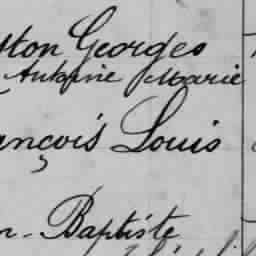 ston Georges
Antoine Marie
ançois Louis
n-Baptiste